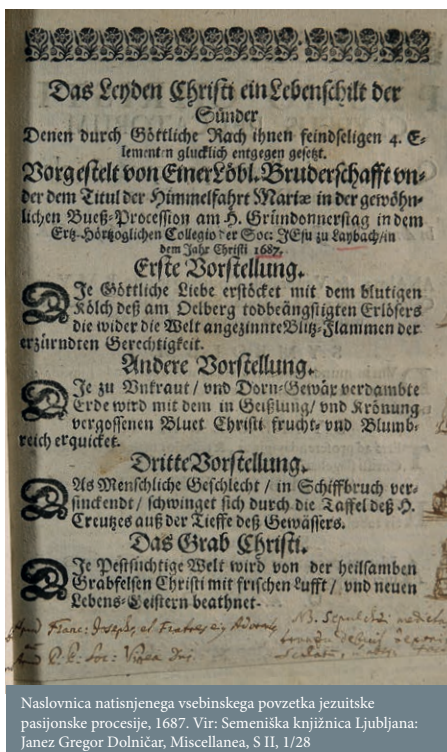 Das Leyden Christi ein Lebenschilt der
Sünder
Denen durch Göttliche Rach ihnen feindseligen 4. E-
lementen glucklich entgegen gesetzt.
Vorgestelt von Einer Löbl. Bruderschafft vn-
der dem Titul der Himmelfahrt Mariæ in der gewöhn-
lichen Bueß-Procession am H. Gründonnerstag in dem
Ertz-Hörtzoglichen Collegio der Soc: JEsu zu Laybach/in
dem Jahr Christi 1687.
Erste Vorstellung.
DIe Göttliche Liebe erstöcket mit dem blutigen
Kölch deß am Oelberg todbeängstigten Erlösers
die wider die Welt angezinnte Blitz-Flammen der
erzürndten Gerechtigkeit.
Andere Vorstellung.
DIe zu Vnkraut / vnd Dorn-Gewäx verdambte
Erde wird mit dem in Geißlung/ vnd Krönung
vergossenen Bluet Christi frucht- vnd Blumb-
reich erquicket.
Dritte Vorstellung.
DAs Menschliche Geschlecht / in Schiffbruch ver-
sinckendt / schwinget sich durch die Taffel deß H.
Creutzes auß der Tieffe deß Gewässers.
Das Grab Christi.
DIe Pestsüchtige Welt wird von der heilsamben
Grabfelsen Christi mit frischen Lufft / vnd neuen
Lebens-Geistern beathnet.
Franc: Joseph, et
NB. Sepulchri
P. P. Soc:
Naslovnica natisnjenega vsebinskega povzetka jezuitske
pasijonske procesije, 1687. Vir: Semeniška knjižnica Ljubljana:
Janez Gregor Dolničar, Miscellanea, S II, 1/28